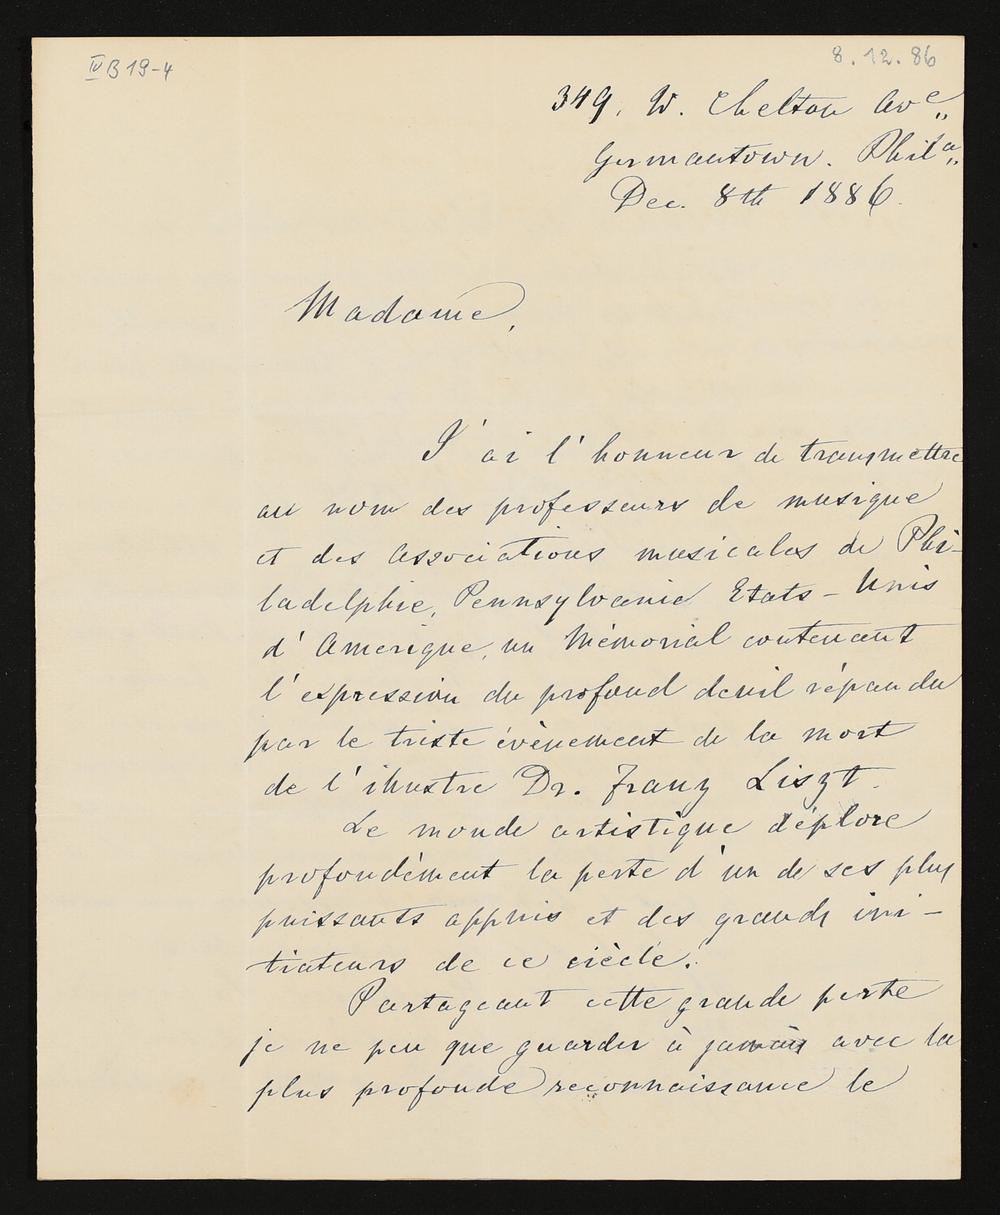 IV B 19-4
8.12.86
349, W. Chelton Ave„
Germantown. Phila„
Dec. 8th 1886.
Madame,
J'ai l'honneur de transmettre
au nom des professeurs de musique
et des Associations musicales de Phi-
ladelphie, Pennsylvanie Etats-Unis
d'Amerique, un Mémorial contenant
l'expression du profond deuil répandu
par le triste évènement de la mort
de l'illustre Dr. Franz Liszt.
Le monde artistique déplore
profondément la perte d'un de ses plus
puissants appuis et des grands ini-
tiateurs de ce ciècle.
Partageant cette grande perte
je ne peu que guarder à jamais avec la
plus profonde reconnaissance le